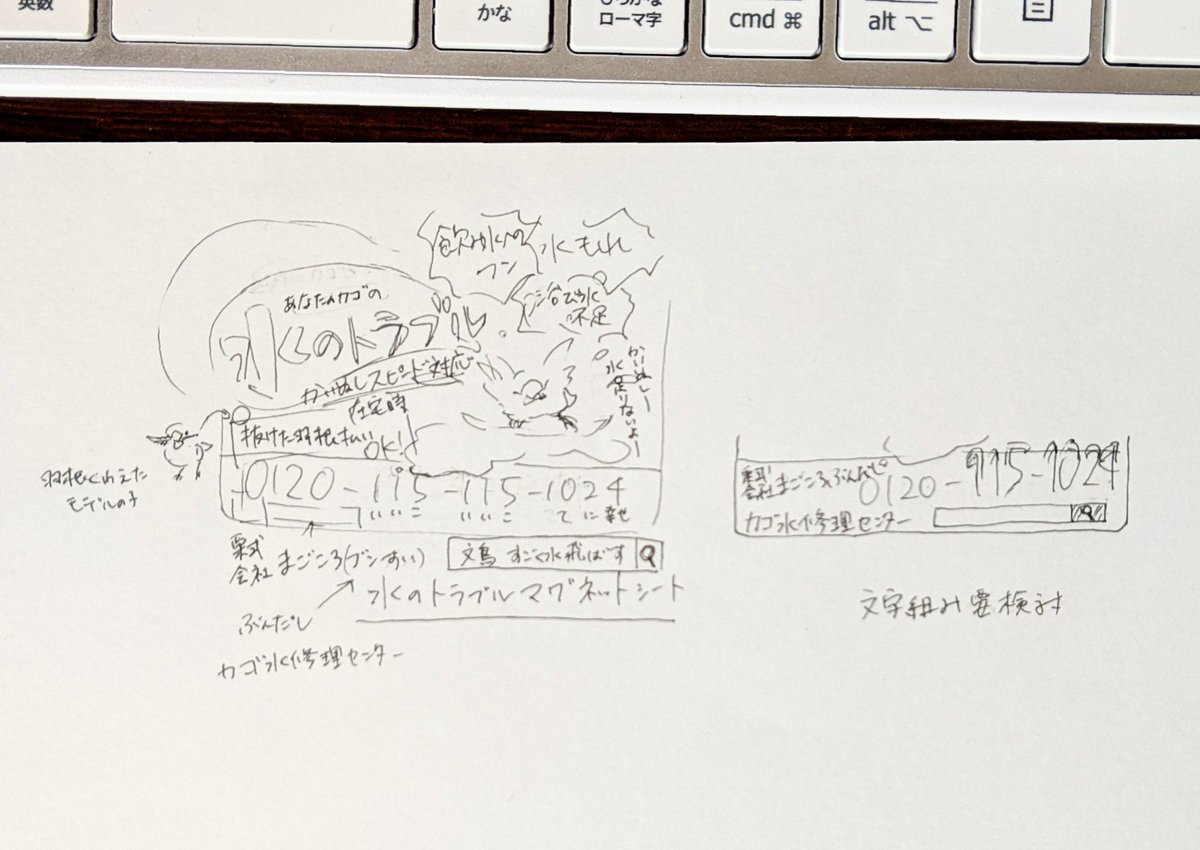 英数
かな
ひらがな
ローマ字
cmd ⌘
alt ⌥
飲み水への
フン
水もれ
あなたのカゴの
水のトラブル
浴び水
不足
かいぬしスピード対応
かいぬしー
水足りないよー
在宅時
OK!
抜けた羽根払い
羽根くわえた
モデルの子
0120-115-115-1024
いいこ いいこ てに幸せ
栗式
会社 まごころ(ブンすい)
文鳥 すごく水飛ばす
水のトラブルマグネットシート
ぶんだし
カゴ水修理センター
栗式
会社 まごころぶんだし
0120-115-1024
カゴ水修理センター
文字組み要検討